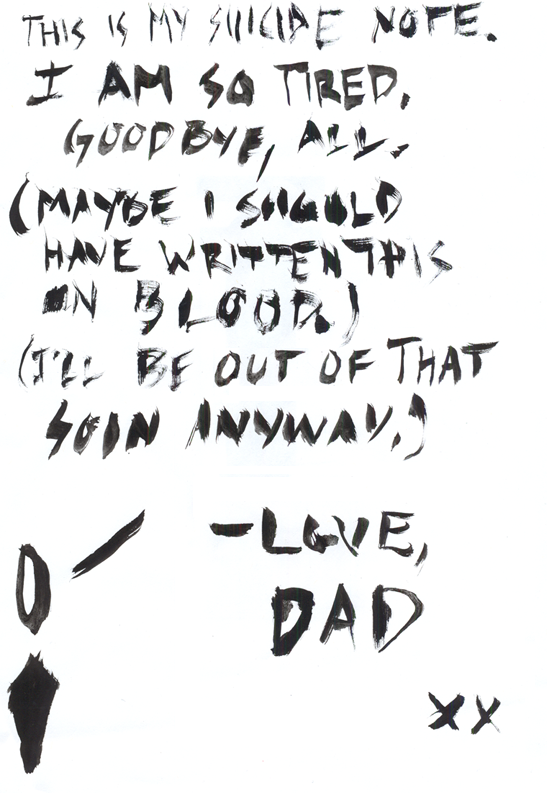 THIS IS MY SUICIDE NOTE.
I AM SO TIRED.
GOODBYE, ALL.
(MAYBE I SHOULD
HAVE WRITTEN THIS
IN BLOOD.)
(I'LL BE OUT OF THAT
SOON ANYWAY.)
-LOVE,
DAD
XX